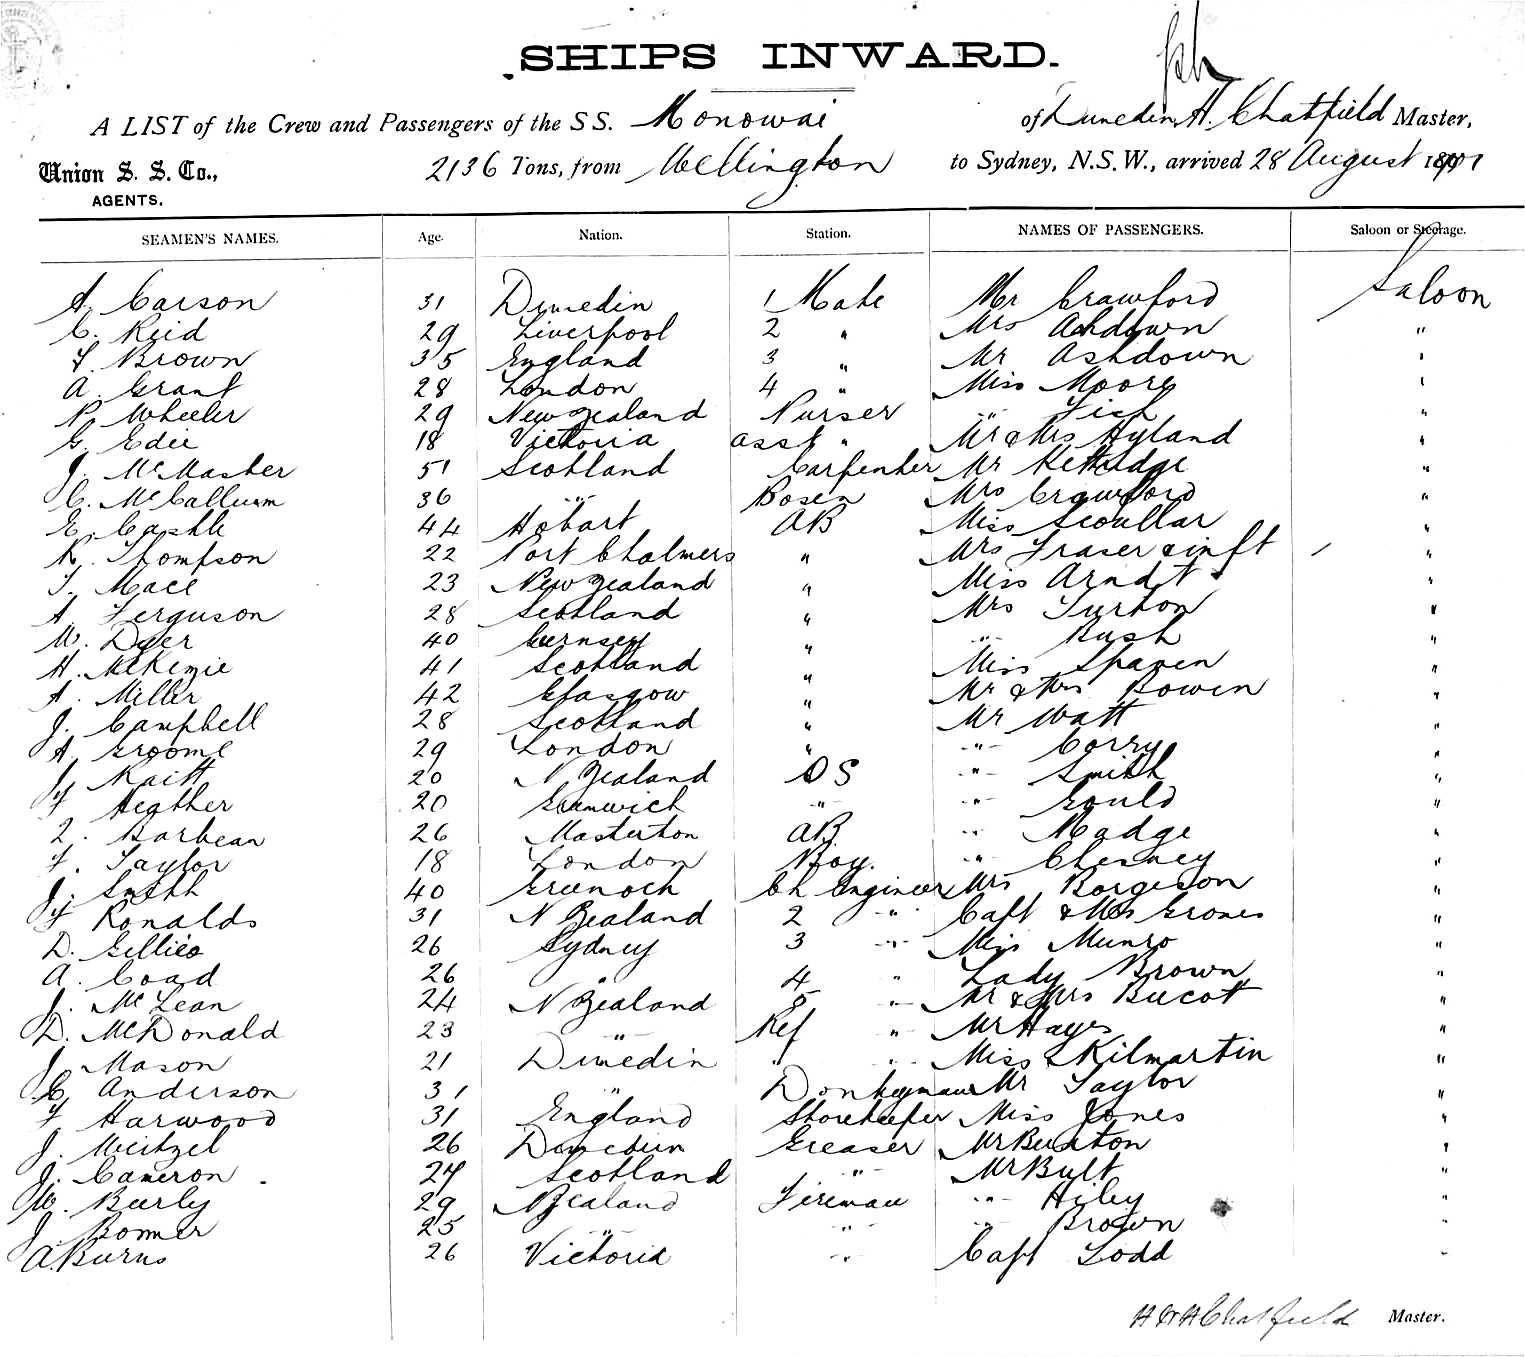 SHIPS INWARD.
A LIST of the Crew and Passengers of the S S. Monowai of Dunedin, H. Chatfield Master,
Union S. S. Co., 2136 Tons, from Wellington to Sydney, N.S.W., arrived 28 August 1891
AGENTS.
SEAMEN'S NAMES. Age. Nation. Station. NAMES OF PASSENGERS. Saloon or Steerage.
A. Carson 31 Dunedin 1 Mate Mr Crawford Saloon
C. Reid 29 Liverpool 2 " Mrs Ashdown "
F. Brown 35 England 3 " Mr Ashdown "
A. Grant 28 London 4 " Miss Moore "
P. Wheeler 29 New Zealand Purser " "
G. Edie 18 Victoria asst " Mr & Mrs Hyland "
J. McMaster 51 Scotland Carpenter Mr Kettridge "
C. McCallum 36 " Bosen Mrs Crawford "
E. Castle 44 Hobart AB Miss Scoullar "
R. Thompson 22 Port Chalmers " Mrs Fraser & inft "
T. Mace 23 New Zealand " Miss Arndt "
A. Ferguson 28 Scotland " Mrs Turton "
W. Dyer 40 Guernsey " " Rush "
H. McKenzie 41 Scotland " Miss Spaven "
A. Miller 42 Glasgow " Mr & Mrs Bowen "
J. Campbell 28 Scotland " Mr Watt "
A. Groome 29 London " " Corry "
J. Raitt 20 N Zealand OS " Smith "
F Heather 20 Greenwich " " Gould "
Barbean 26 Masterton AB. " Madge "
F. Taylor 18 London Boy. " Chesney "
J. Smith 40 Greenock Ch Engineer Mrs Borgeson "
F Ronalds 31 N Zealand 2 " Capt & Mrs Groves "
D. Gillies 26 Sydney 3 " Miss Munro "
A. Coad 26 " 4 " Lady Brown "
J. McLean 24 N Zealand 5 " Mr & Mrs Bucott "
D. McDonald 23 " Ref " Mr Hayes "
J. Mason 21 Dunedin " " Miss Kilmartin "
C. Anderson 31 " Donkeyman Mr Taylor "
F Harwood 31 England Storekeeper Miss Jones "
J. Meitzel 26 Dunedin Greaser Mr Buxton "
J. Cameron 27 Scotland " Mr Bult "
W. Burly 29 N Zealand Fireman " Hiley "
J. Bonner 25 " " " Brown "
A Burns 26 Victoria " Capt Todd "
Chatfield Master.